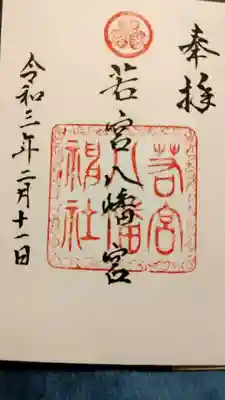 奉拝
若宮八幡宮
若宮
八幡
神社
令和三年二月十一日